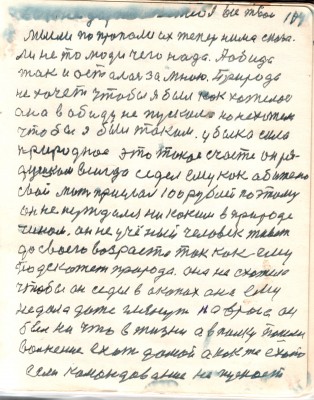 все твои 184
мысли попропали их теперь нима сказа
ли не то люди чего нада. А обида
так и осталас за мною. Природа
не хочеть чтобы я был как хотелос
она в обиду не пускала но не хотела
чтобы я был таким. у была сила
природное это такое счастє он ря
душком всегда седел ему как обижено
свой мат прислал 100 рублей поэтому
он не нуждался ни каким в природе
чином. он не учёный человек
до своего возраста так как ему
подскажет природа. она не схотела
чтобы он седел в окопах она ему
недала даже глянут на врага он
был на что в жизни а в полку пошли
волнение ехат дамой а как же ехат
если командование не пускаєт